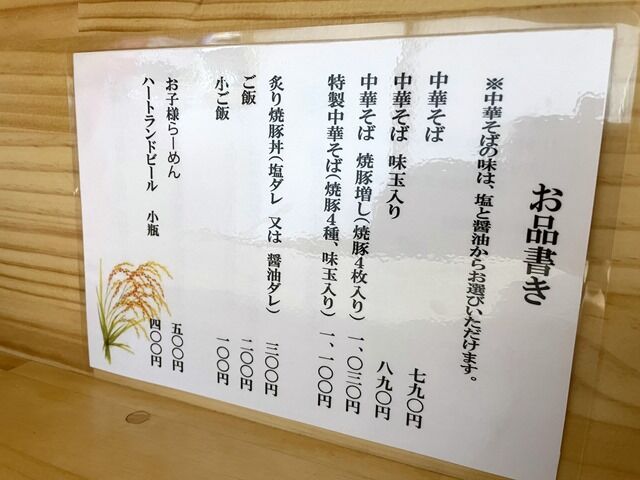 お品書き
※中華そばの味は、塩と醤油からお選びいただけます。
中華そば 七九〇円
中華そば 味玉入り 八九〇円
中華そば 焼豚増し(焼豚4枚入り) 一、〇三〇円
特製中華そば(焼豚4種、味玉入り) 一、一〇〇円
炙り焼豚丼(塩ダレ 又は 醤油ダレ) 三〇〇円
ご飯 二〇〇円
小ご飯 一〇〇円
お子様らーめん 五〇〇円
ハートランドビール 小瓶 四〇〇円